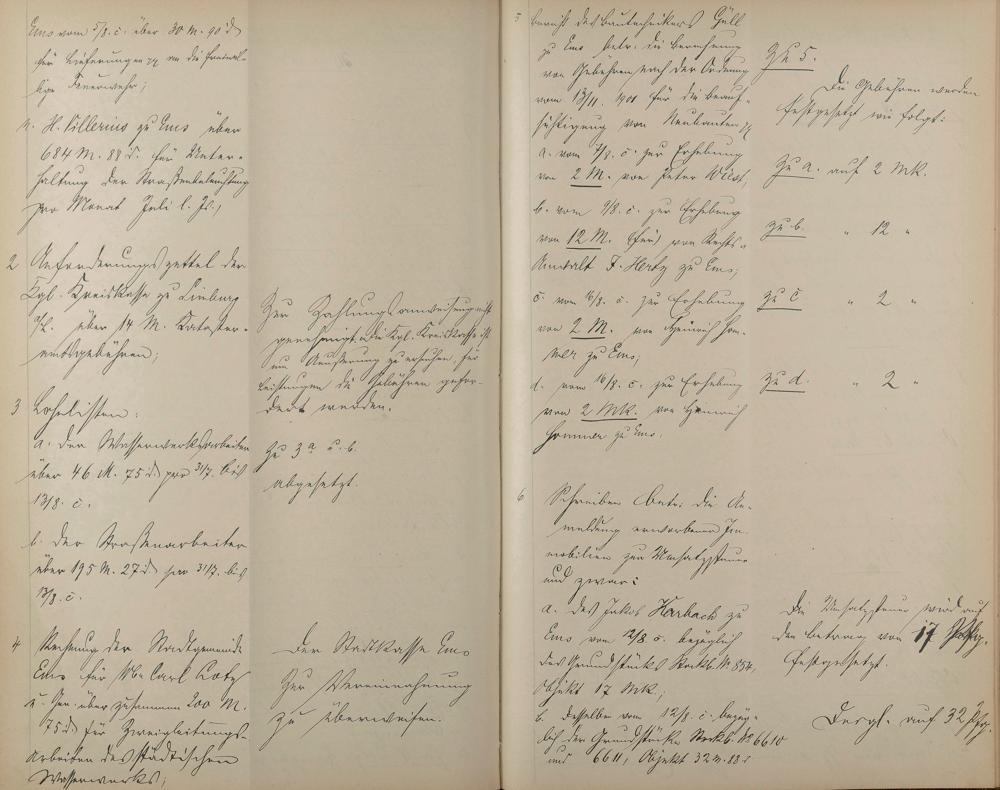 Ems vom 5/8. c. über 30 M. 90 d
für Lieferungen pp an die freiwil-
lige Feuerwehr;
n. H. Villerius zu Ems über
684 M. 88 d. für Unter-
haltung der Straßenbeleuchtung
pro Monat Juli l. Js.;
2 Anforderungszettel der
Kgl. Kreiskasse zu Limburg
a/L. über 14 M. Kataster-
amtsgebühren;
Zur Zahlungsanweisung nicht
genehmigt. Die Kgl. Kreiskasse ist
um Äußerung zu ersuchen, für
Leistungen die Gebühren gefor-
dert werden.
3 Lohnlisten:
a. der Wasserwerksarbeiter
über 46 M. 75 d pro 31/7. bis
13/8. c.
b. der Straßenarbeiter
über 195 M. 27 d pro 31/7. bis
13/8. c.
Zu 3 a u. b.
abgesetzt.
4 Rechnung der Stadtgemeinde
Ems für Carl Lotz
u. Gen. über zusammen 200 M.
75 d für Zweigleitungs-
arbeiten des städtischen
Wasserwerks;
Der Stadtkasse Ems
zur Vereinnahmung
zu überweisen.
5 Bericht des Bautechnikers Güll
zu Ems betr. die Berechnung
von Gebühren nach der Ordnung
vom 13/11. 1901 für die Beauf-
sichtigung von Neubauten pp
a. vom 7/8. c. zur Erhebung
von 2 M. von Peter Wüst,
b. vom 9/8. c. zur Erhebung
von 12 M. von Rechts-
Anwalt F. Hertz zu Ems;
c. vom 16/8. c. zur Erhebung
von 2 M. von Heinrich Hom-
mer zu Ems;
d. vom 16/8. c. zur Erhebung
von 2 Mk. von Heinrich
Hommer zu Ems.
Zu 5.
Die Gebühren werden
festgesetzt wie folgt:
Zu a. auf 2 Mk.
Zu b. " 12 "
Zu c " 2 "
Zu d. " 2 "
6 Schreiben betr. die An-
meldung erworbener Im-
mobilien zur Umsatzsteuer
und zwar:
a. des Jakob Harbach zu
Ems vom 12/8 c. bezüglich
des Grundstücks Stockb. № 554,
Objekt 17 Mk.;
b. desselben vom 12/8. c. bezüg-
lich der Grundstücke Stockb. № 6610
und 6611, Objekt 32 M. 83 d
Die Umsatzsteuer wird auf
den Betrag von 17 Pfg.
festgesetzt.
Desgl. auf 32 Pfg.